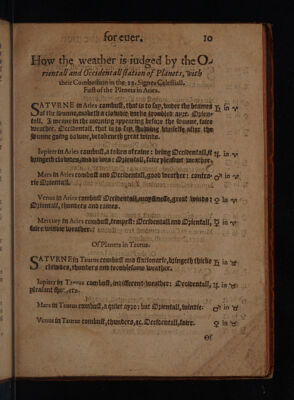 for euer. 10
How the weather is iudged by the O-
rientall and Occidentall station of Planets, with
their Combustion in the 12. Signes Celestiall.
First of the Planets in Aries.
SATVRNE in Aries combust, that is to say, vnder the beames ♄ in ♈
of the Sunne, maketh clowdes, turbulent ayre. Orien-
tall, I meane in the morning appearing before the Sunne, faire
weather. Occidentall, that is to say, shewing himselfe after the
Sunne going downe, betokeneth great winds.
Iupiter in Aries combust, a token of raine: being Occidentall, it ♃ in ♈
bringeth clowdes, and Orientall, faire pleasant weather.
Mars in Aries combust and Occidentall, good weather: contra- ♂ in ♈
rie Orientall.
Venus in Aries combust Occidentall, great winds: ♀ in ♈
Orientall, thunders and raines.
Mercury in Aries combust, tempest: Occidentall and Orientall, ☿ in ♈
faire weather.
Of Planets in Taurus.
SATVRNE in Taurus combust and Orientall, bringeth thicke ♄ in ♉
clowdes, thunders and troublesome weather.
Iupiter in Taurus combust, indifferent weather: Occidentall, ♃ in ♉
pleasant
Mars in Taurus combust, a quiet ayre: but Orientall, windie. ♂ in ♉
Venus in Taurus combust, thunders, &c. Occidentall, faire. ♀ in ♉
Of